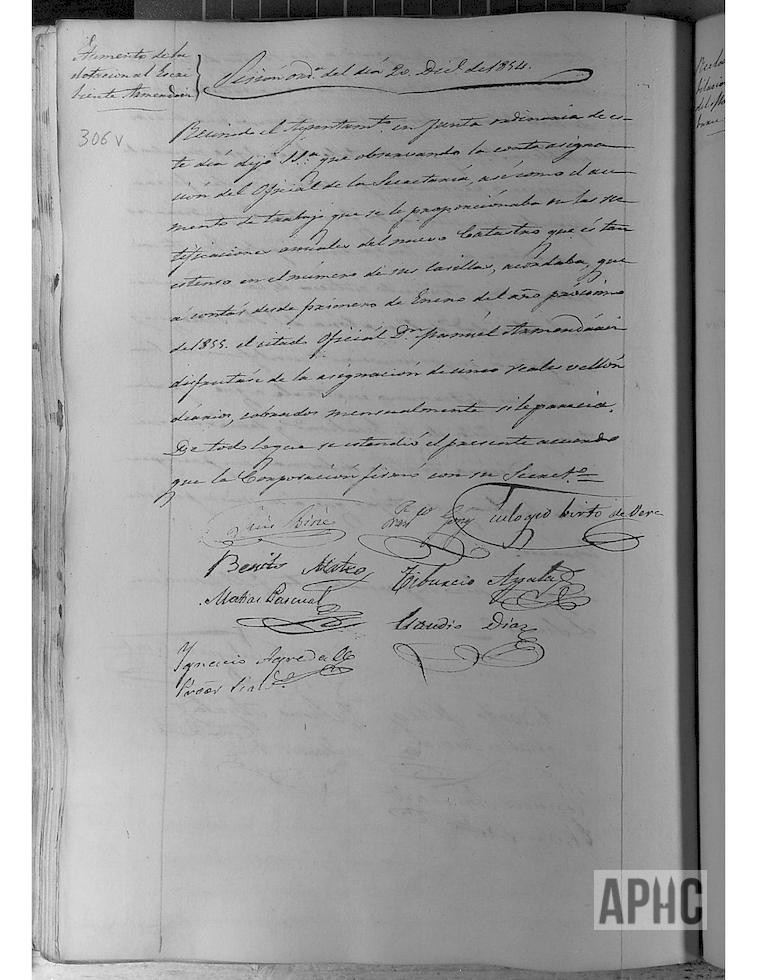 Aumento de la
dotacion al Escri-
biente Armendáriz
Sesión ordª del día 20 Dicᵉ de 1854.
306 v
Reunido el Ayuntamtº en Junta ordinaria de es-
te día dijo S.ª que observando la corta asigna-
ción del Oficial de la Secretaría, así como el au-
mento de trabajo que se le proporcionaba en las rec-
tificaciones anuales del nuevo Catastro que és tan
estenso en el número de sus casillas, acordaba, que
a contar desde primero de Enero del año próximo
de 1855. el citado Oficial Dⁿ Manuel Armendáriz
disfrutáse de la asignación de cinco reales vellón
diarios, cobrados mensualmente si le parecia.
De todo lo que se estendió el presente acuerdo
que la Corporación firmó con su Secretº =
Luis
Franᶜº Eulogio Kirto de Vera
Benito Mateo Tiburcio Ayala
Matias Pascual
Claudio Diaz
Ignacio Agreda
Procᵒʳ Sind.º
APHC